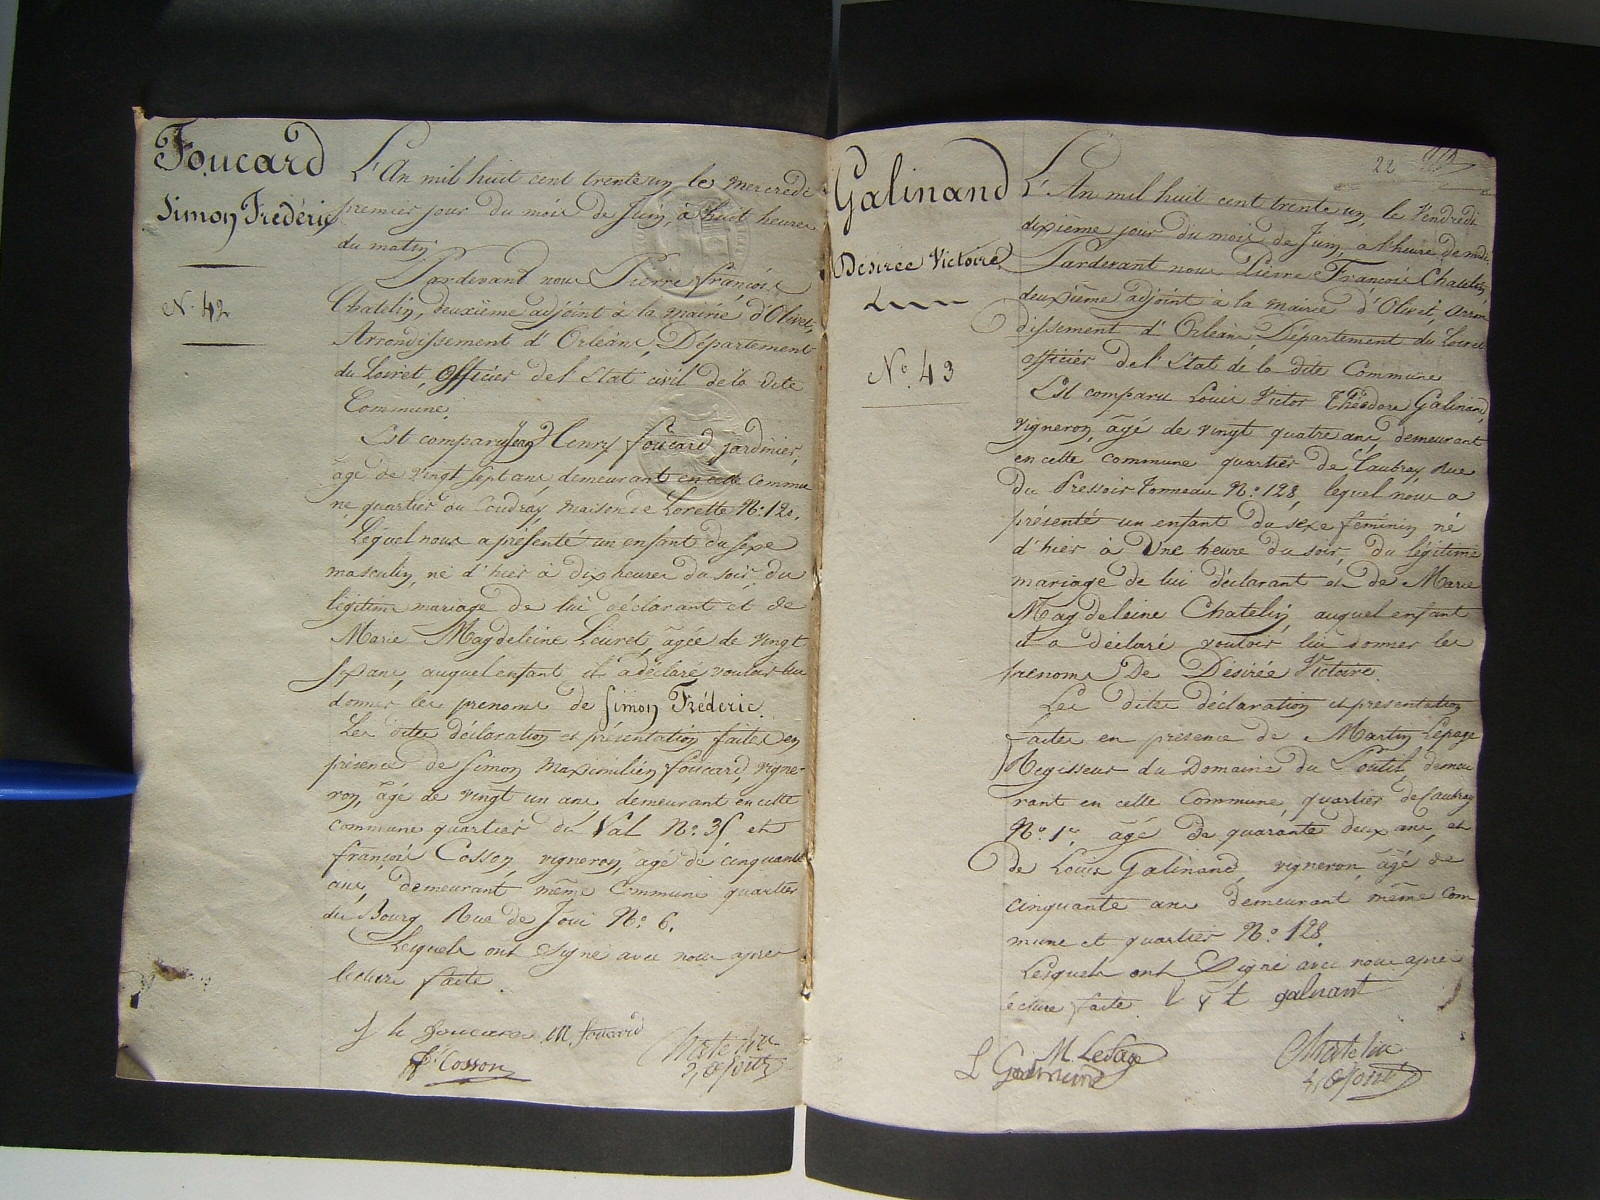 Foucard
Simon Frédéric
N.° 42
L'An mil huit cent trente un, le mercredi
premier jour du mois de Juin, à huit heures
du matin
Pardevant nous Pierre françois
Chatelin, deuxième adjoint à la mairie d'Olivet,
Arrondissement d'Orléans, Département
du Loiret, officier de l'Etat civil de la dite
Commune.
Est comparu Jean Henry foucard, jardinier,
âgé de vingt sept ans, demeurant en cette commu
ne, quartier du Coudray, maison de Lorette N.°
Lequel nous a présenté un enfant du sexe
masculin, né d'hier à dix heures du soir, du
légitime mariage de lui déclarant et de
Marie Magdeleine Liuret, âgée de vingt
six ans, auquel enfant il a déclaré vouloir lui
donner les prenoms de Simon Fréderic.
Les dites déclaration et présentation faites en
présence de Simon Maximilien foucard, vigne-
ron, âgé de vingt un ans, demeurant en cette
commune quartier du Val N.° 35 et
françois Cosson, vigneron, âgé de cinquante
ans, demeurant même Commune quartier
du Bourg Rue de Joui N.° 6.
Lesquels ont Signé avec nous après
lecture faite.
J h foucard M. foucard Chatelin
f. Cosson 2, adjoint
22
Galinand
Desirée Victoire
N.° 43
L'An mil huit cent trente un, le Vendredi
dixieme jour du mois de Juin, à l'heure de midi.
Pardevant nous Pierre François Chatelin,
deuxième adjoint à la mairie d'Olivet, arron
dissement d'Orléans, Département du Loiret
officier de l'Etat de la dite Commune
Est comparu Louis Victor Théodore Galinand,
vigneron, âgé de vingt quatre ans, demeurant
en cette commune quartier de Caubray Rue
du Pressoir Tonneau N.° 128, lequel nous a
présenté un enfant du sexe féminin né
d'hier à Une heure du soir, du légitime
mariage de lui déclarant et de Marie
Magdeleine Chatelin, auquel enfant
il a déclaré vouloir lui donner les
prenoms De Désirée Victoire.
Les dites déclaration et présentation
faites en présence de Martin Lepage
Régisseur du Domaine du Poutil, demeu
rant en cette Commune quartier de Caubray
N.° 1.er, âgé de quarante deux ans, et
de Louis Galinand, vigneron, âgé de
cinquante ans demeurant même Com
mune et quartier N.° 128.
Lesquels ont Signé avec nous après
lecture faite. l v t galinant
M. LePage Chatelin
L Galinand 2, adjoint